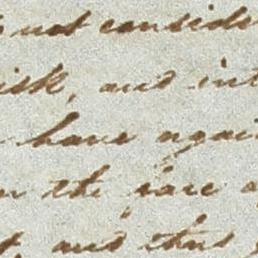 not conside
isk, and int
have again
the rare
and thus